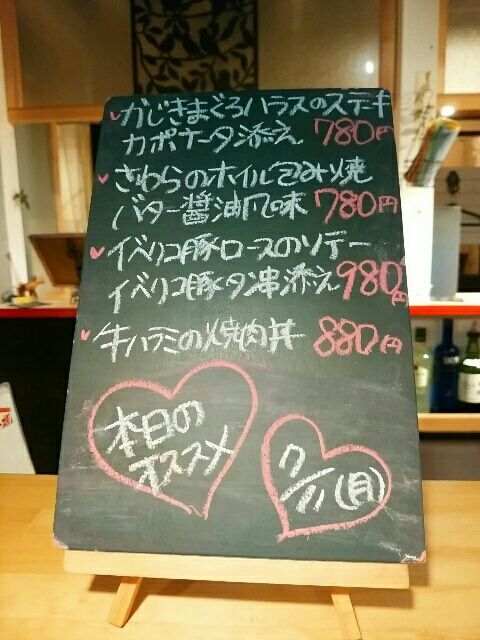 かじきまぐろハラスのステーキ
カポナータン添え 780円
さわらのホイル包み焼
バター醤油風味 780円
イベリコ豚ロースのソテー
イベリコ豚タン串添え 980円
牛ハラミの焼肉丼 880円
本日の
オススメ
7/11(月)